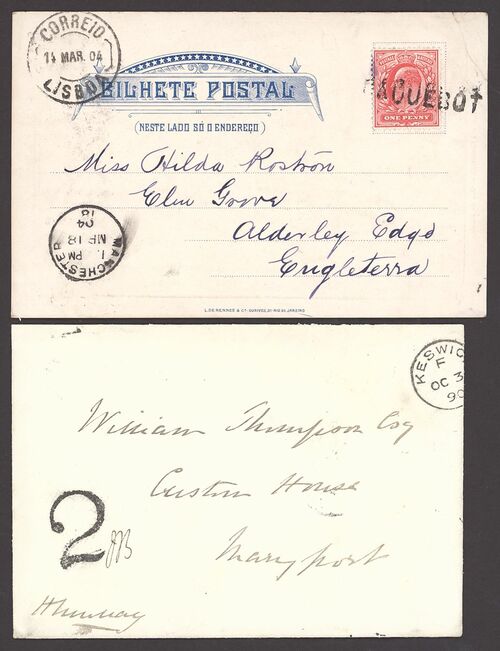 CORREIO
14 MAR. 04
LISBOA
BILHETE POSTAL
(NESTE LADO SÓ O ENDEREÇO)
PAQUEBOT
POSTAGE REVENUE
ONE PENNY
Miss Hilda Rostron
Elm Grove
Alderley Edge
Engleterra
MANCHESTER
PM
MR 18
04
18
L. DE RENNES & Cª
RIO DE JANEIRO
KESWICK
F
OC 3
90
William Thompson Esq
Custom House
Maryport
2